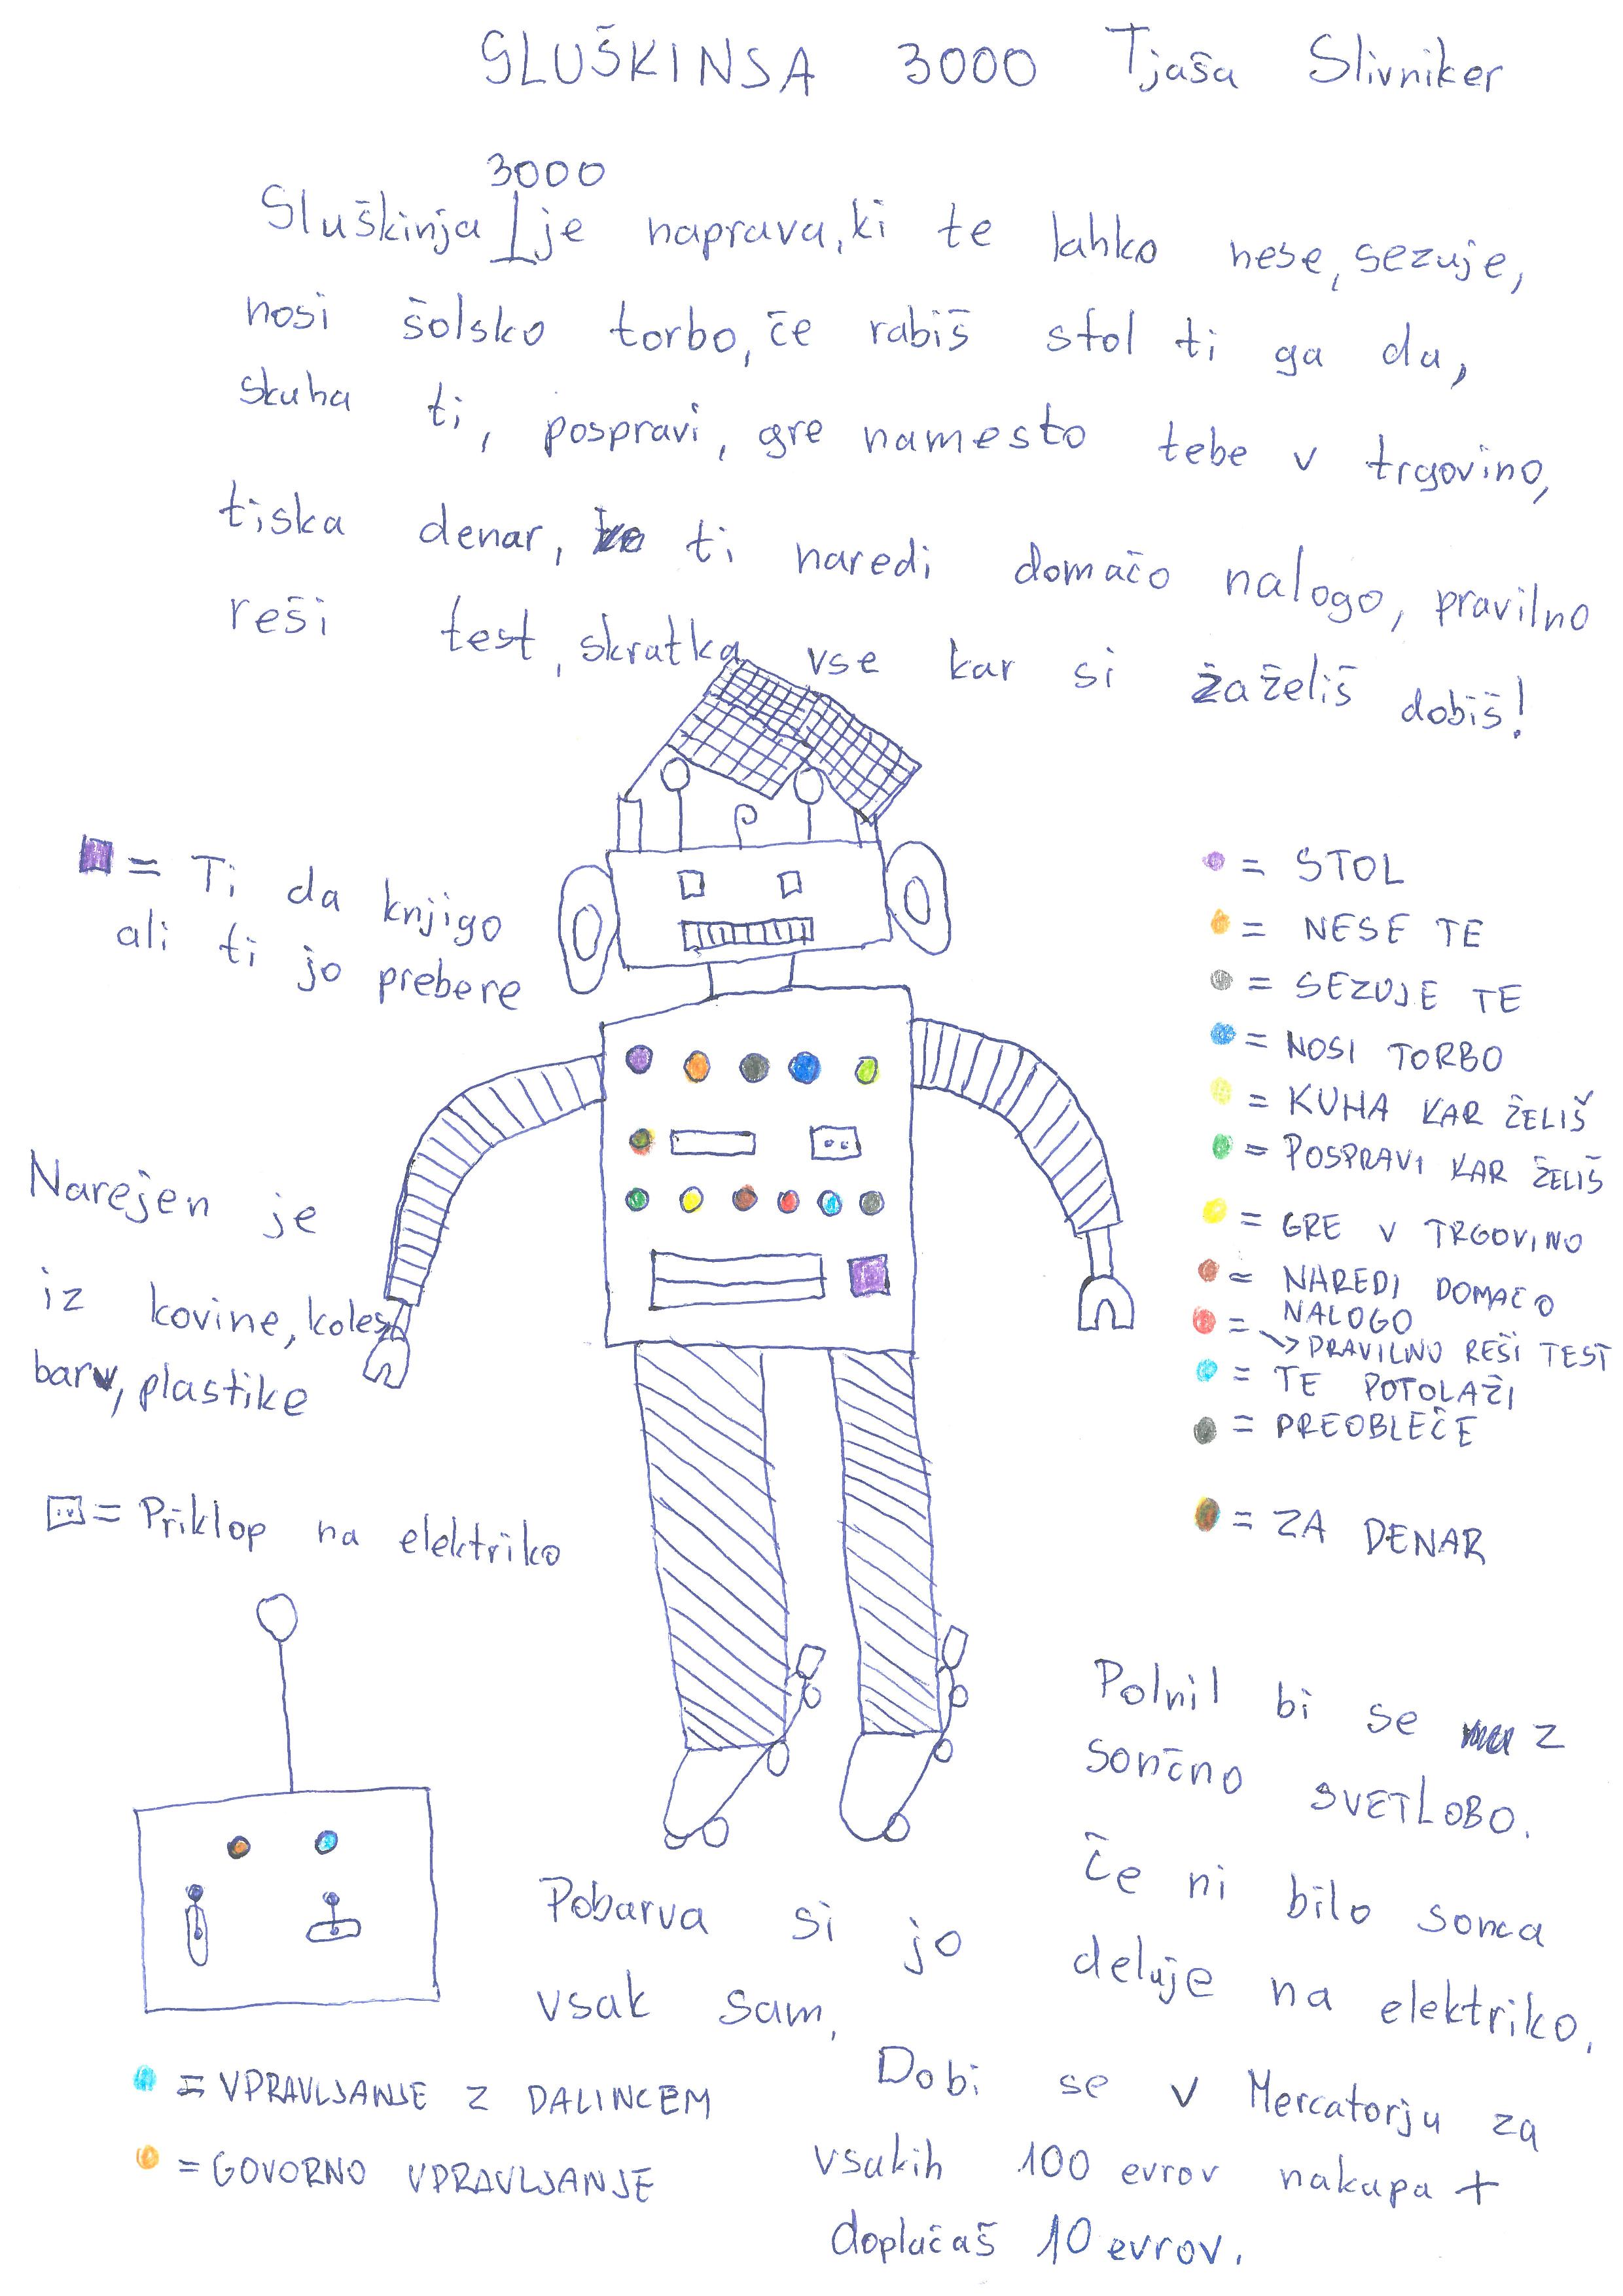 SLUŠKINSA 3000 Tjaša Slivniker
3000
Sluškinja je naprava, ki te lahko nese, sezuje,
nosi šolsko torbo, če rabiš stol ti ga da,
skuha ti, pospravi, gre namesto tebe v trgovino,
tiska denar, ti naredi domačo nalogo, pravilno
reši test, skratka vse kar si zaželiš dobiš!
= Ti da knjigo
ali ti jo prebere
= STOL
= NESE TE
= SEZUJE TE
= NOSI TORBO
= KUHA KAR ŽELIŠ
= POSPRAVI KAR ŽELIŠ
= GRE V TRGOVINO
= NAREDI DOMAČO
NALOGO
= → PRAVILNO REŠI TEST
= TE POTOLAŽI
= PREOBLEČE
= ZA DENAR
Narejen je
iz kovine, koles,
barv, plastike
= Priklop na elektriko
Polnil bi se z
sončno SVETLOBO.
Če ni bilo sonca
deluje na elektriko.
Pobarva si jo
vsak sam.
= UPRAVLJANJE Z DALINCEM
= GOVORNO UPRAVLJANJE
Dobi se v Mercatorju za
vsakih 100 evrov nakupa +
doplačaš 10 evrov.